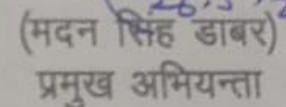 (मदन सिंह डाबर)
प्रमुख अभियन्ता